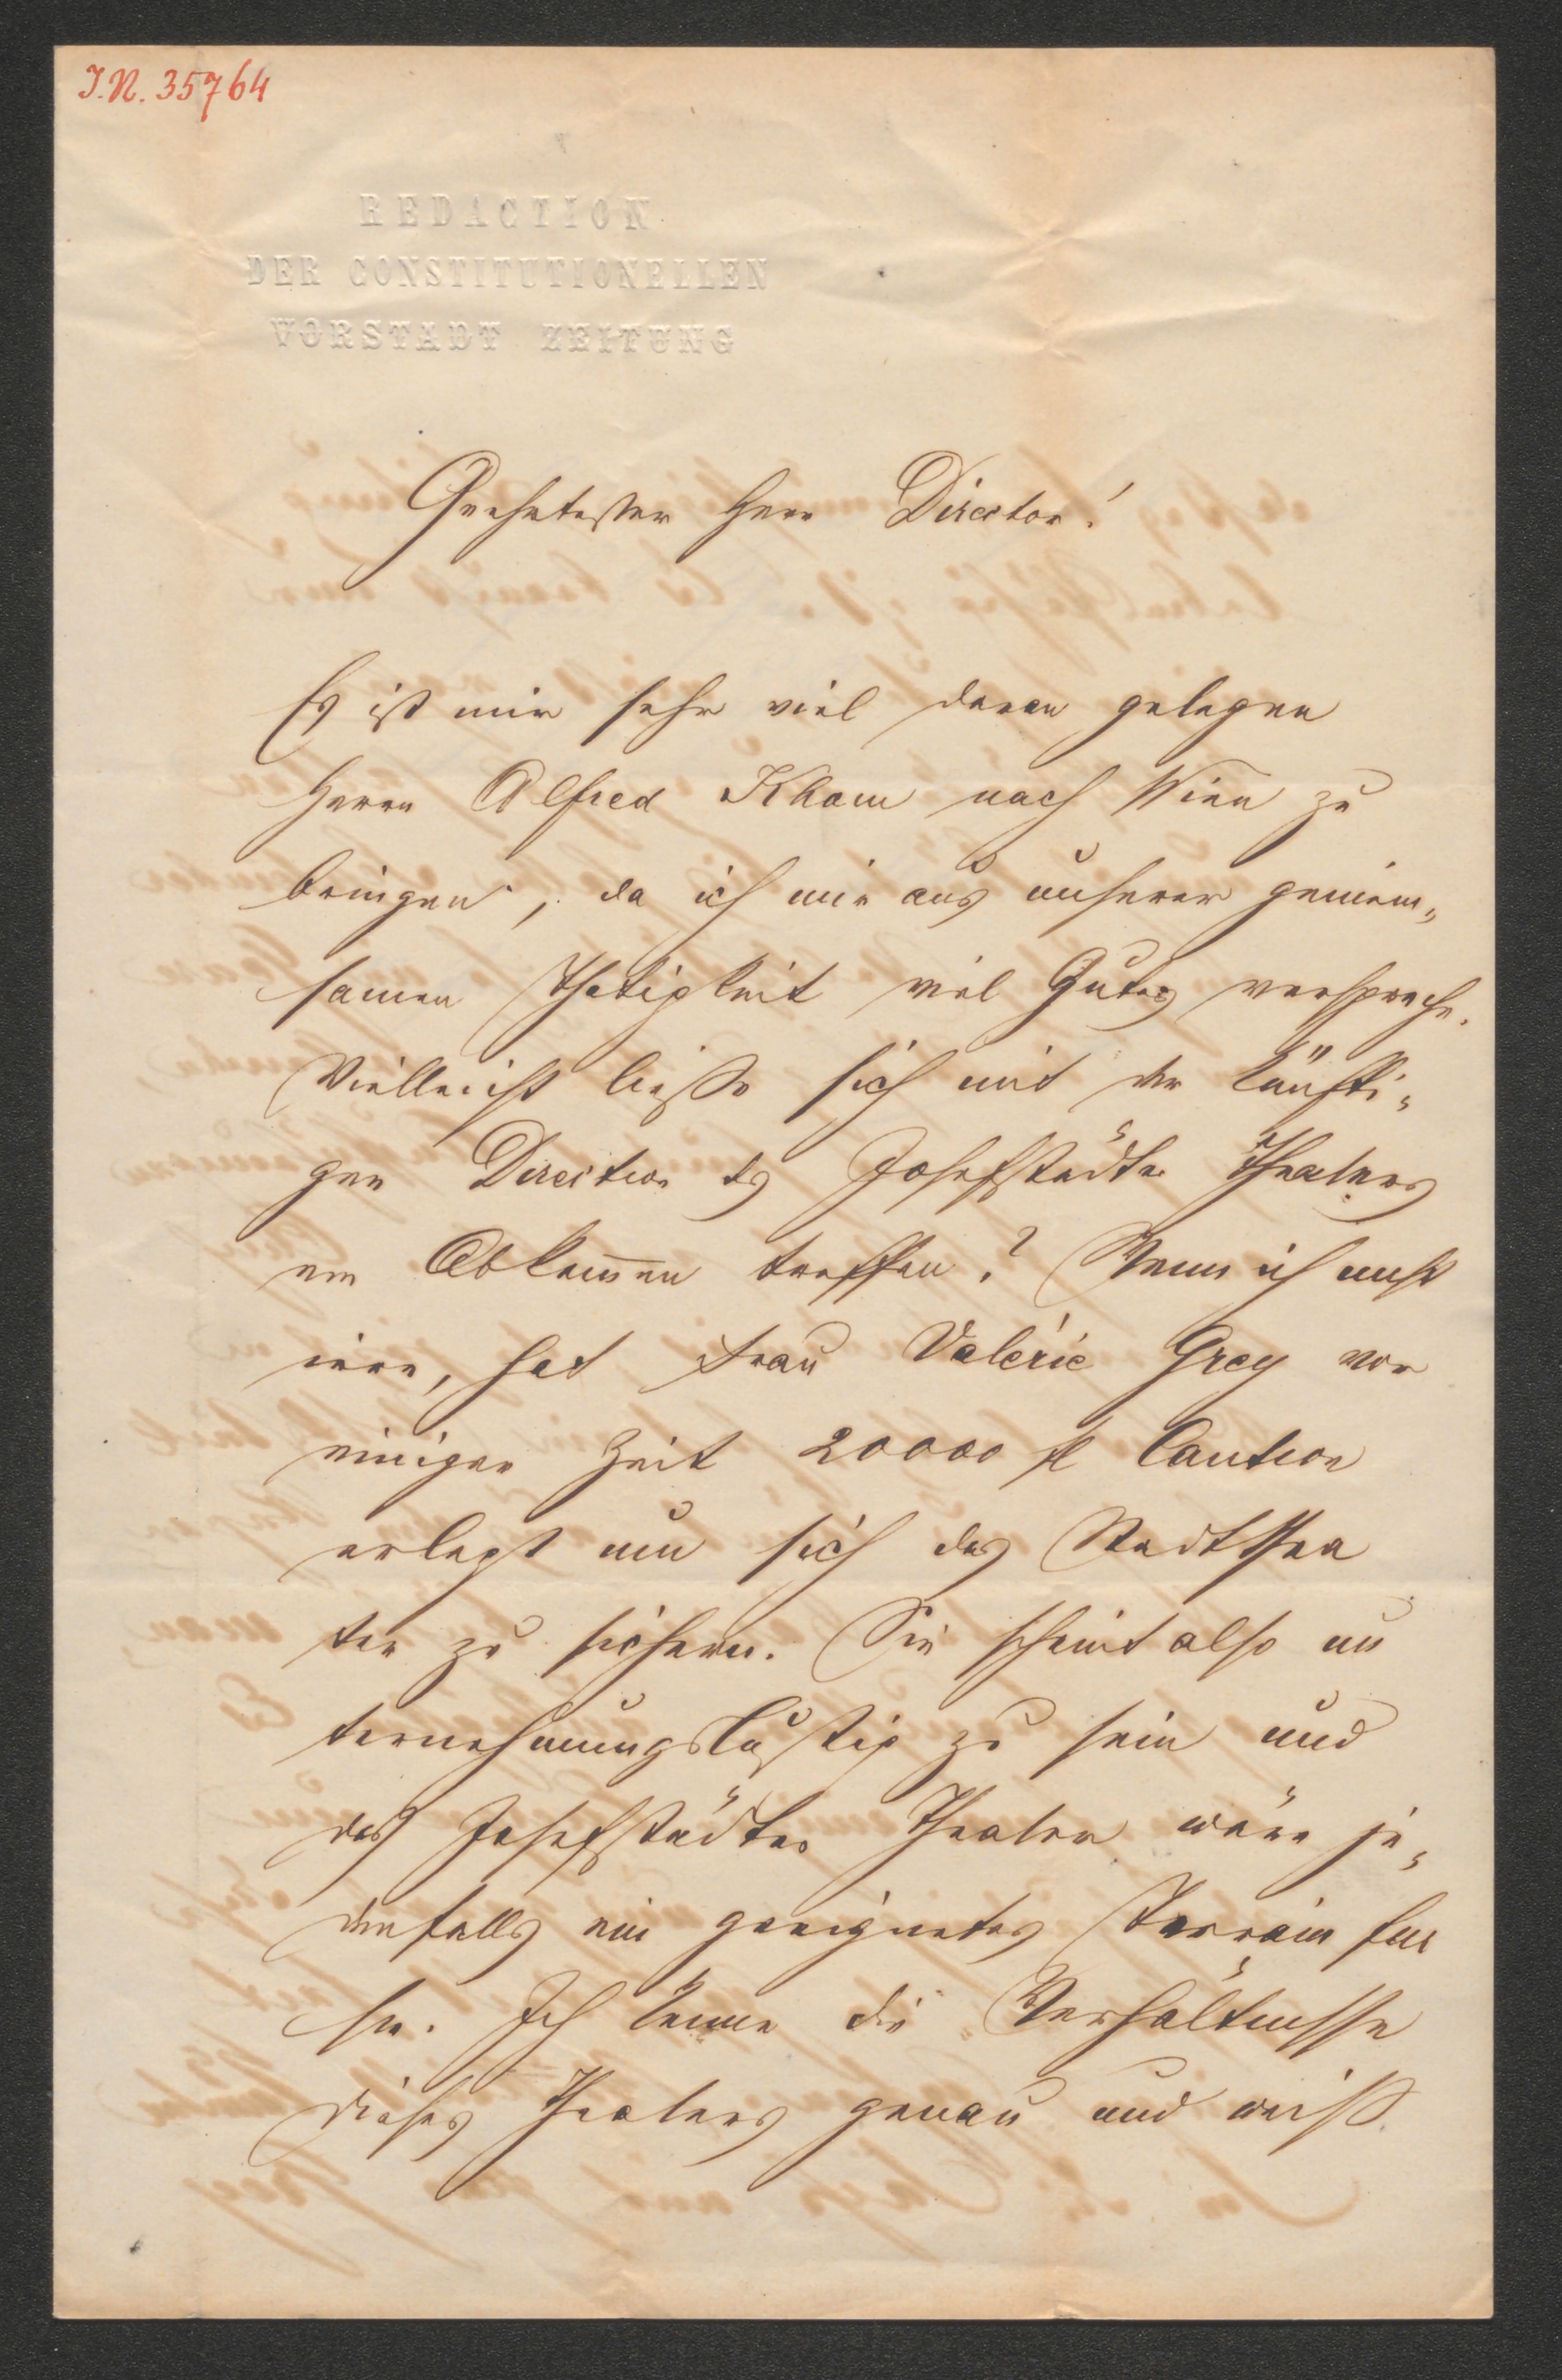 J.N. 35764
REDACTION
DER CONSTITUTIONELLEN
VORSTADT ZEITUNG
Geehrtester Herr Director!
Es ist mir sehr viel daran gelegen
Herrn Alfred Klaar nach Wien zu
bringen, da ich mir aus unserer gemein„
samen Thätigkeit viel Gutes verspreche.
Vielleicht ließe sich mit der künfti„
gen Direction des Josefstädter Theaters
ein Abkom̄en treffen? Wenn ich nicht
irre, hat Frau Valérie Grey vor
einiger Zeit 20000 fl Caution
erlegt um sich das Stadtthea
ter zu sichern. Sie scheint also un
ternehmungslustig zu sein und
das Josefstädter Theater wäre je„
denfalls ein geeignetes Terrain für
sie. Ich kenne die Verhältnisse
dieses Theaters genau und weiß